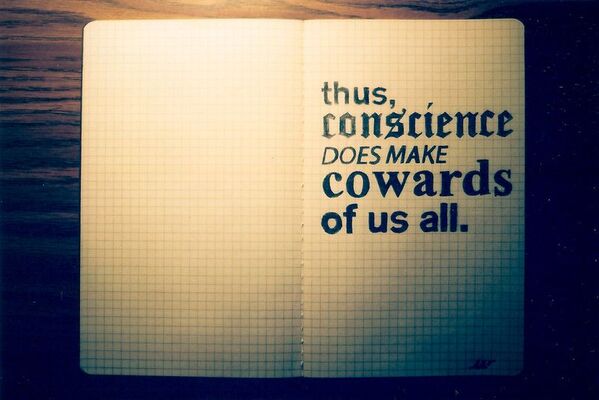 thus,
conscience
DOES MAKE
cowards
of us all.